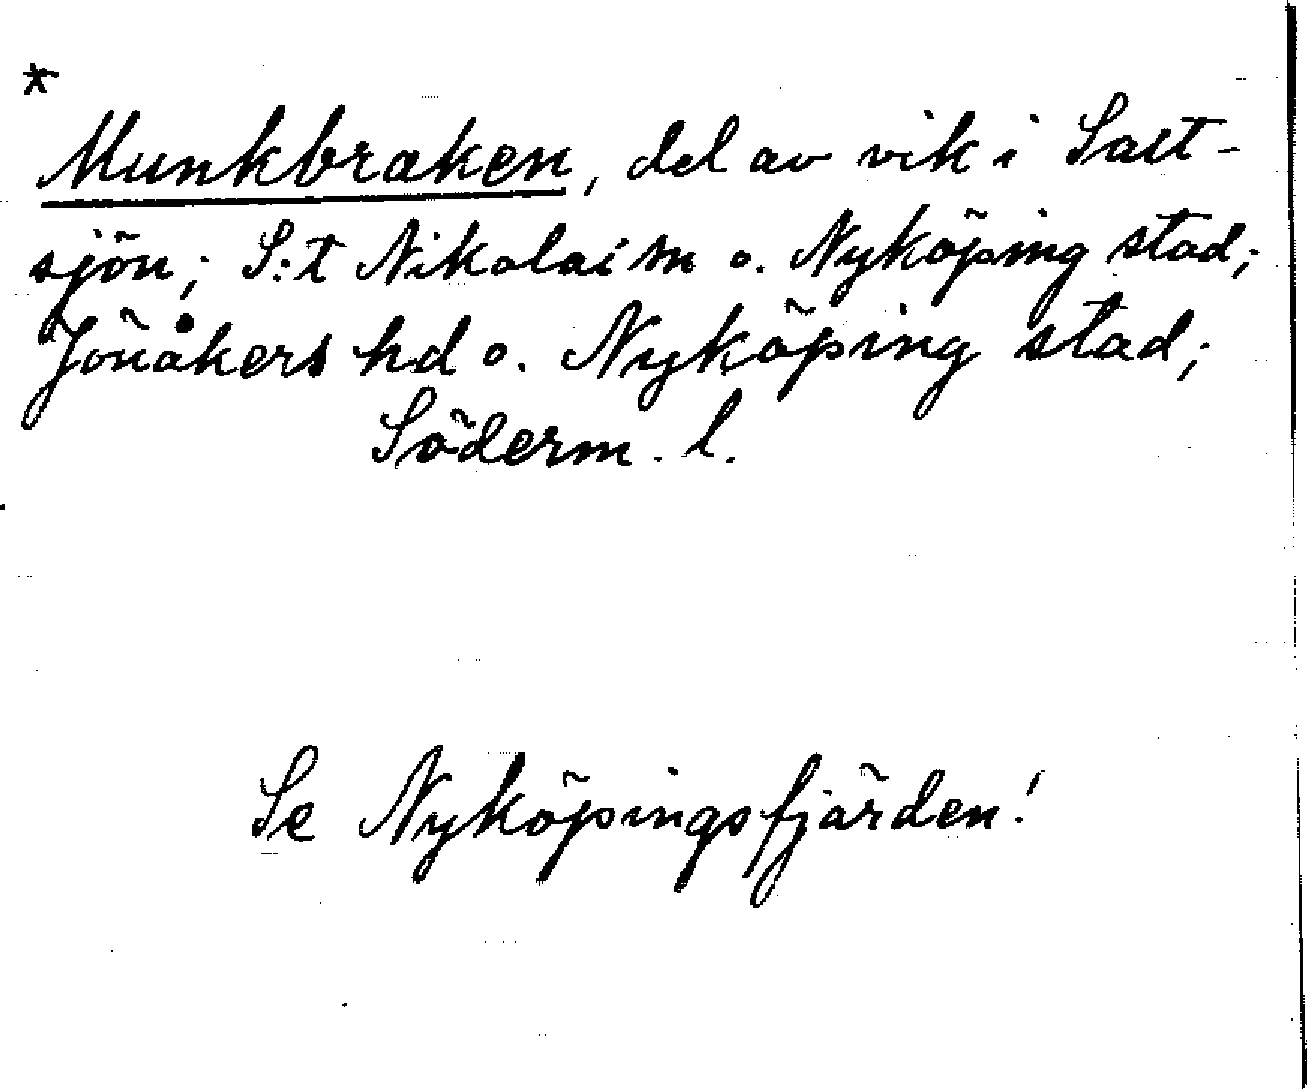 *
Munkbraken, del av vik i Salt-
sjön; S:t Nikolai sn o. Nyköping stad;
Jönåkers hd o. Nyköping stad;
Söderm. l.
Se Nyköpingsfjärden!